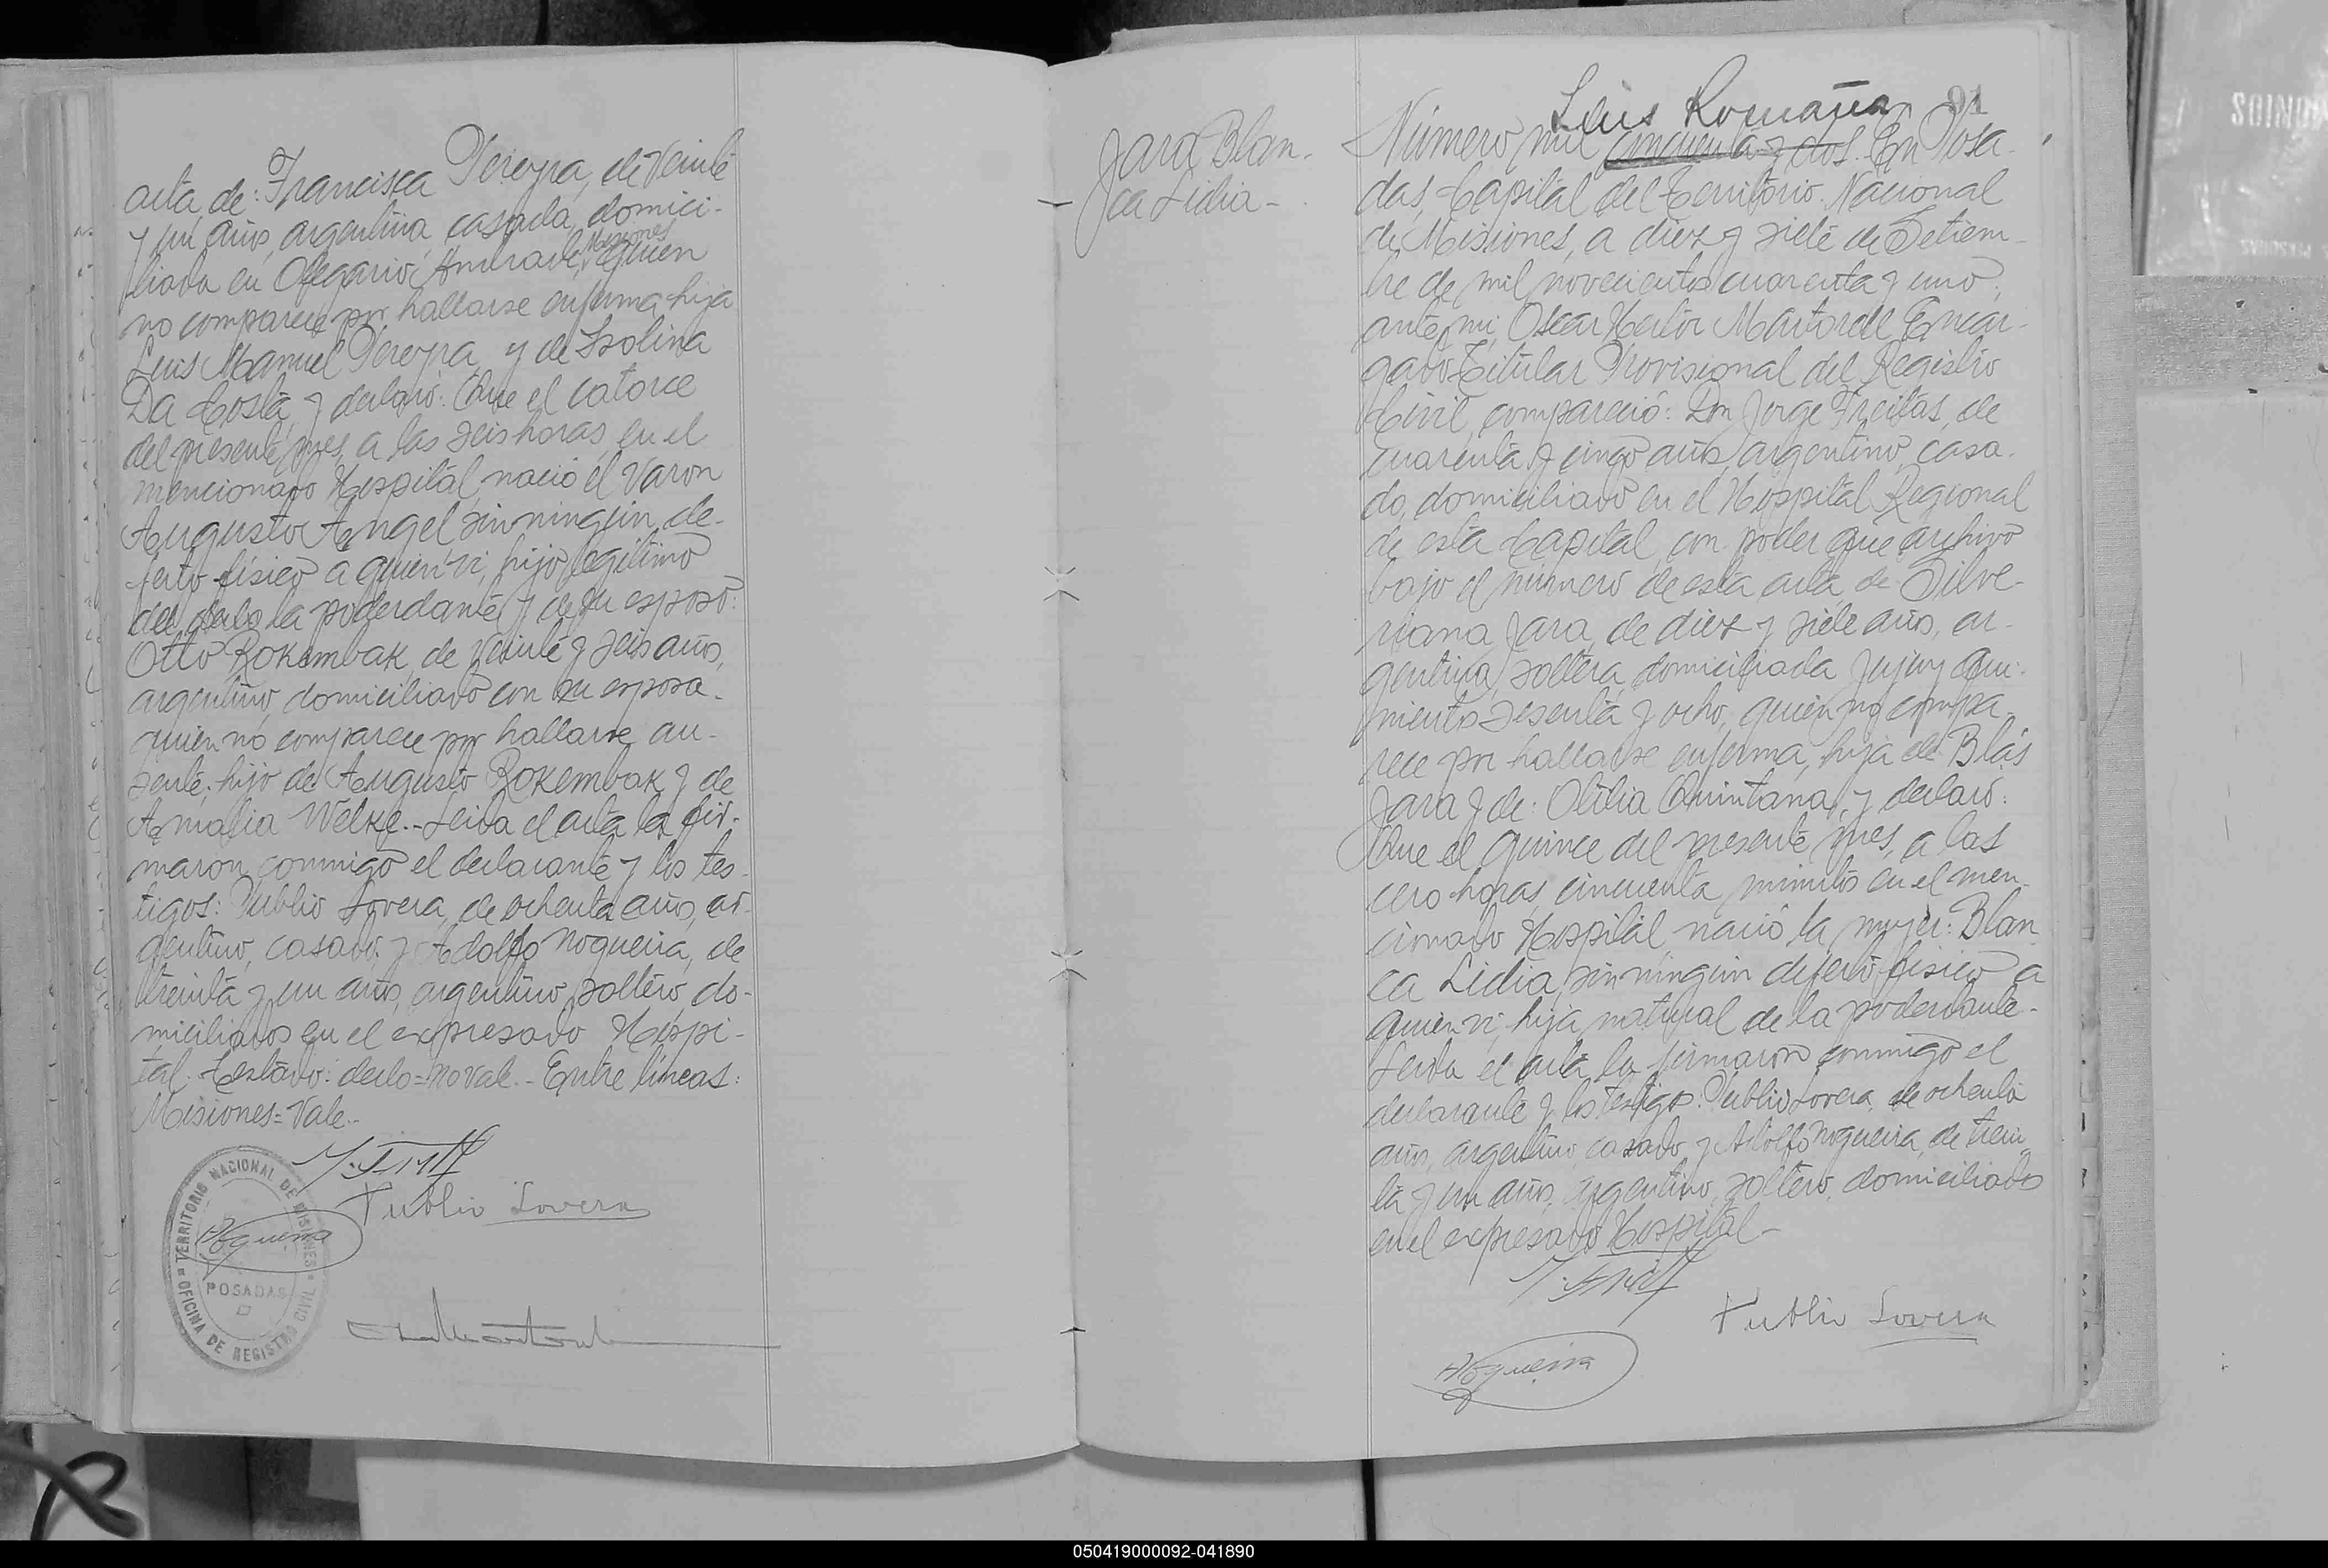 acta de: Francisca Pereyra, de veinte
y un años, argentina, casada, domici-
liada en Olegario Andrade, Misiones quien
no comparece por hallarse enferma hija
Luis Manuel Pereyra y de Isolina
Da Costa, y declaró: Que el catorce
del presente mes, a las seis horas, en el
mencionado Hospital nació el varon
Augusto Angel sin ningún de-
fecto físico a quien vi, hijo legítimo
del declo la poderdante y de su esposo:
Otto Rokembak de veinte y seis años,
argentino, domiciliado con su esposa-
quien no comparece por hallarse au-
sente; hijo de Augusto Rokembak y de
Amalia Welke.- Leida el acta la fir-
maron conmigo el declarante y los tes-
tigos: Publio Lovera, de ochenta años, ar-
gentino, casado; y Adolfo Nogueira, de
treinta y un años, argentino, soltero, do-
miciliados en el expresado Hospi-
tal. Testado: declo=no vale.- Entre líneas:
Misiones=Vale.-
Publio Lovera
ANogueira
TERRITORIO NACIONAL DE MISIONES
POSADAS
OFICINA DE REGISTRO CIVIL
Jara Blan-
ca Lidia-
Luis Romaña
91
Número mil cincuenta y dos. En Posa-
das, Capital del Territorio Nacional
de Misiones, a diez y siete de Setiem-
bre de mil novecientos cuarenta y uno,
ante mi, Oscar Hector Martorell Encar-
gado Titular Provisional del Registro
Civil, compareció: Don Jorge Freitas, de
cuarenta y cinco años, argentino, casa-
do, domiciliado en el Hospital Regional
de esta Capital, con poder que archivo
bajo el número de esta acta de Silve-
riana Jara, de diez y siete años, ar-
gentina, soltera, domiciliada Jujuy qui-
nientos sesenta y ocho, quien no compa-
rece por hallarse enferma, hija de Blás
Jara y de: Otilia Quintana, y declaró:
Que el quince del presente mes, a las
cero horas, cincuenta minutos en el men-
cionado Hospital nació la mujer: Blan
ca Lidia, sin ningún defecto físico a
quien vi, hija natural de la poderdante.-
Leida el acta la firmaron conmigo el
declarante y los testigos: Publio Lovera, de ochenta
años, argentino, casado y Adolfo Nogueira, de trein
ta y un años, argentino, soltero, domiciliados
en el expresado Hospital-
Publio Lovera
ANogueira
050419000092-041890